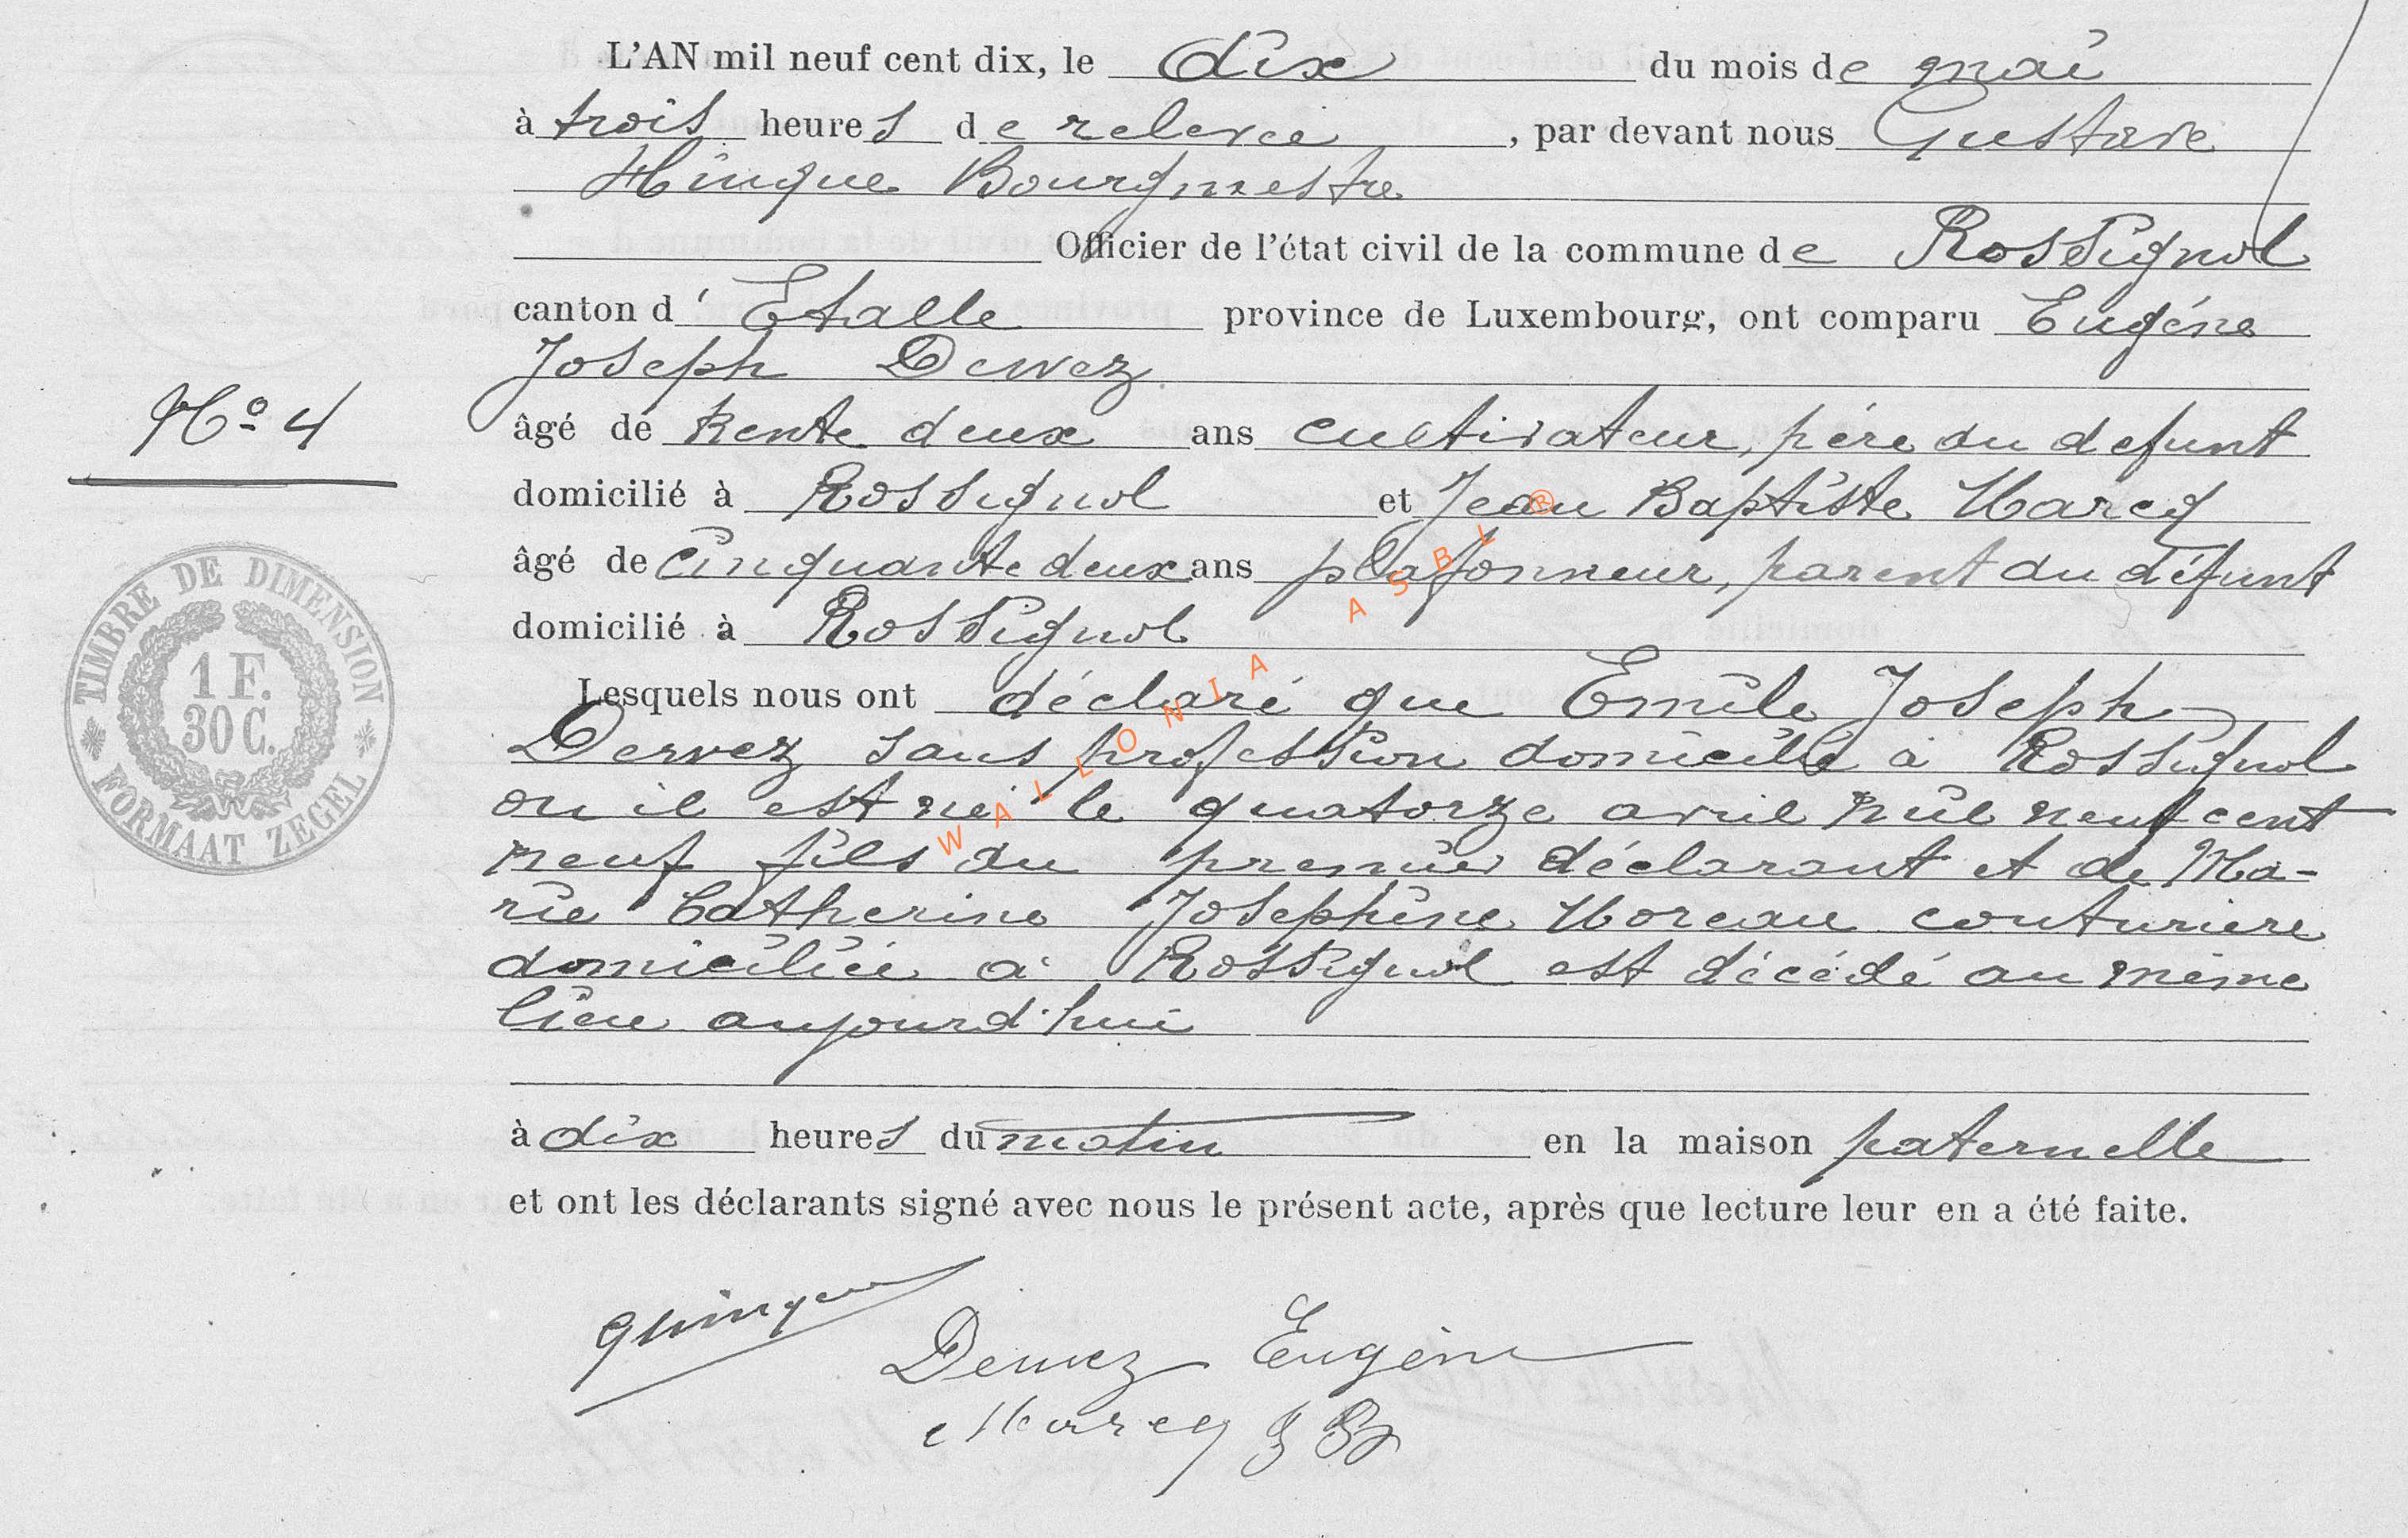 L'AN mil neuf cent dix, le dix du mois de mai
à trois heures de relevée, par devant nous Gustave
Hinque Bourgmestre
Officier de l'état civil de la commune de Rossignol
canton d'Etalle province de Luxembourg, ont comparu Eugéne
Joseph Dervez
N° 4
âgé de trente deux ans cultivateur, pére du defunt
domicilié à Rossignol et Jean Baptiste Marcq
âgé de cinquante deux ans plafonneur, parent du défunt
domicilié à Rossignol
TIMBRE DE DIMENSION
1 F.
30 C.
FORMAAT ZEGEL
Lesquels nous ont déclaré que Emile Joseph
Dervez sans profession domicilié à Rossignol
ou il est né le quatorze avril mil neuf cent
neuf fils du premier déclarant et de Ma-
rie Catherine Joséphine Moreau couturiere
domiciliée à Rossignol est décédé au même
lieu aujourd'hui
à dix heures du matin en la maison paternelle
et ont les déclarants signé avec nous le présent acte, après que lecture leur en a été faite.
Dervez Eugène
Marcq J Bte
WALLONIA ASBL ®